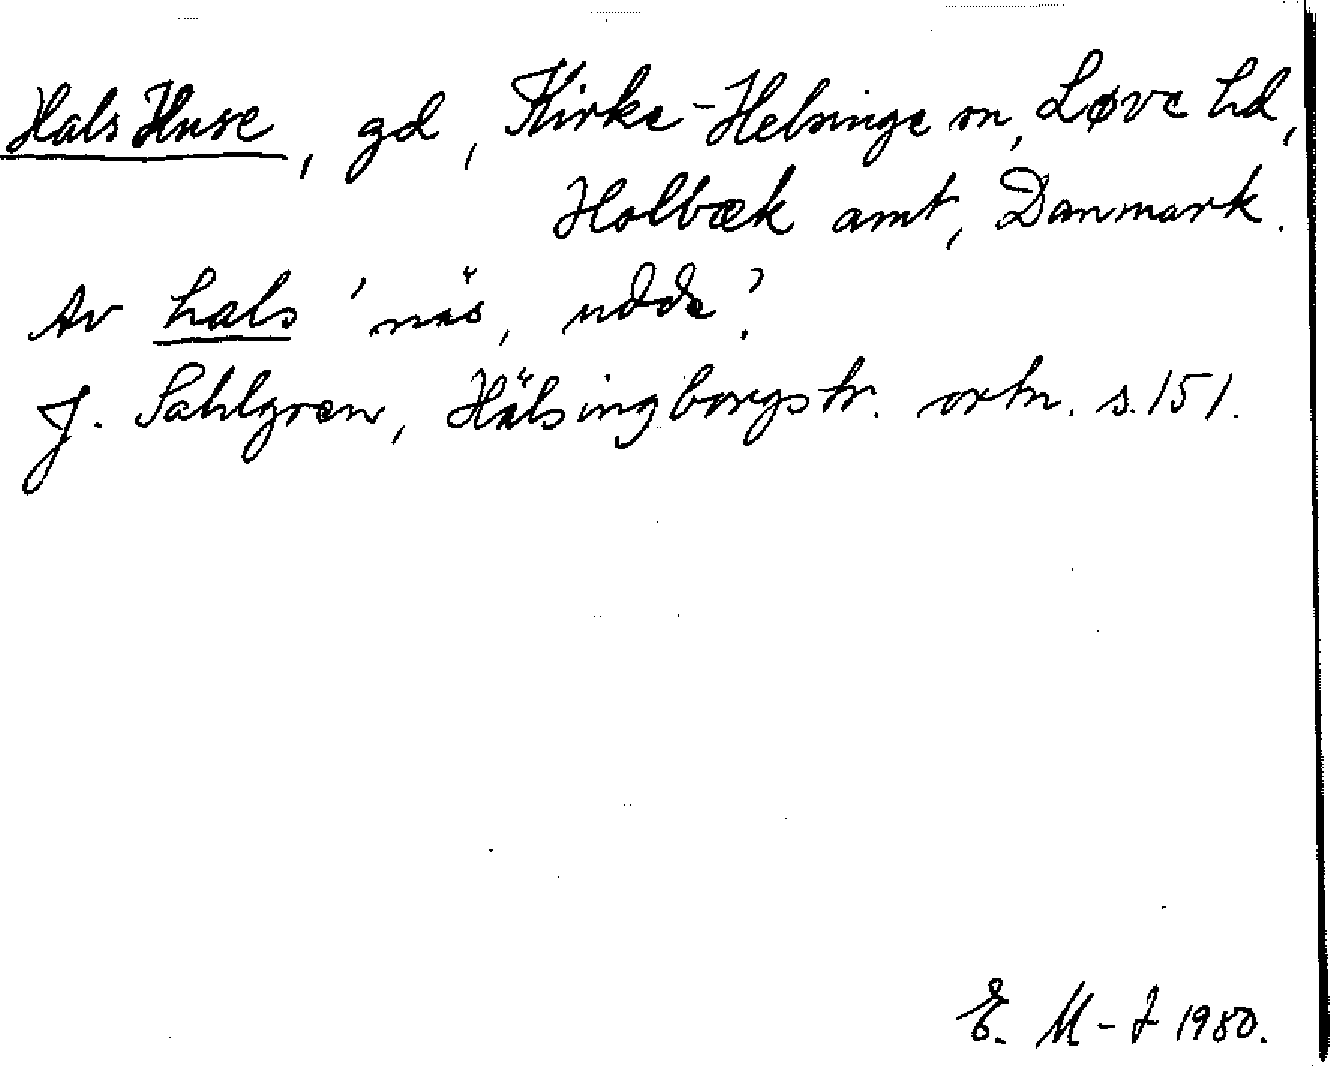 Hals Huse, gd, Kirke-Helsinge sn, Løve hd,
Holbæk amt, Danmark.
Av hals 'näs, udde'.
J. Sahlgren, Hälsingborgstr. ortn. s. 151.
E. M-J 1980.